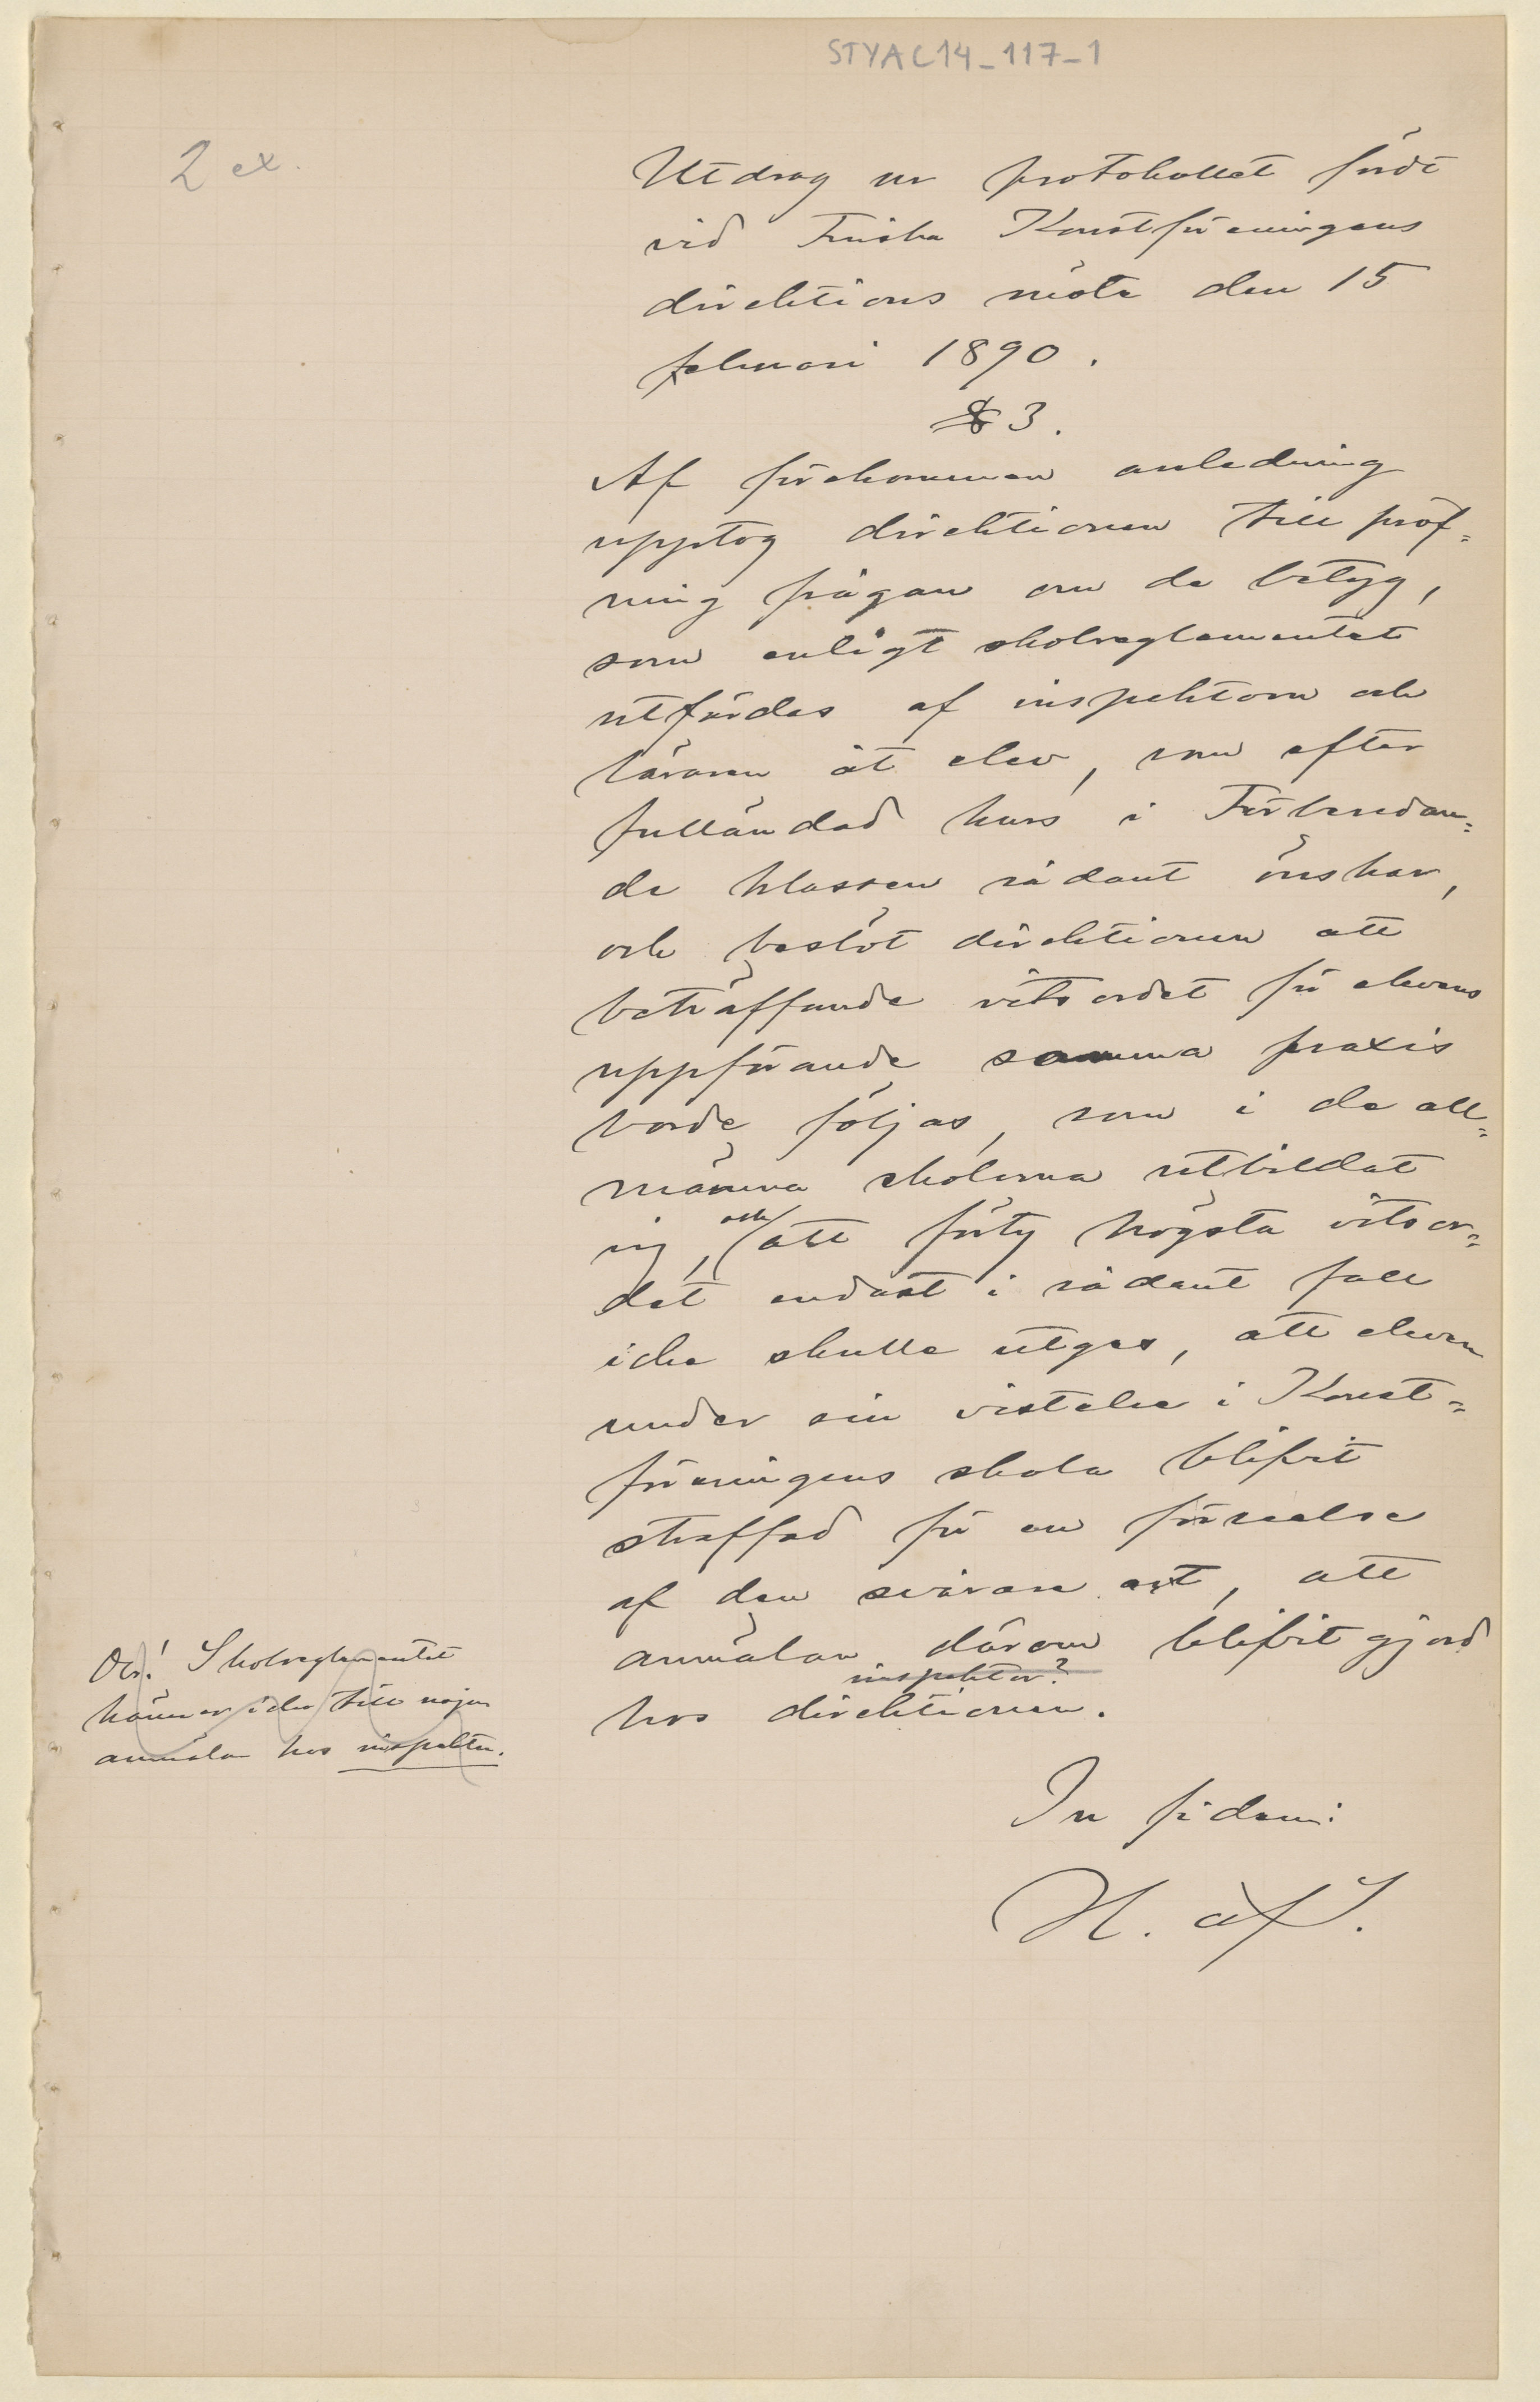 STYA C14_117_1
2 ex.
Utdrag ur protokollet fördt
vid Finska Konstföreningens
direktions möte den 15
februari 1890.
§ 3.
Af förekommen anledning
upptog direktionen till pröf-
ning frågan om de betyg,
som enligt skolreglementet
utfärdas af inspektorn och
läraren åt elev, som efter
fulländad kurs i Förberedan-
de klassen sådant önskar,
och beslöt direktionen att
beträffande vitsordet för elevens
uppförande samma praxis
borde följas, som i de all-
männa skolorna utbildat
sig, och att förty högsta vitsor-
det endast i sådant fall
icke skulle utges, att eleven
under sin vistelse i Konst-
föreningens skola blifvit
straffad för en förseelse
af den svårare art, att
anmälan därom blifvit gjord
inspektor?
hos direktionen.
Obs! Skolreglementet
känner icke till någon
anmälan hos inspektor.
In fidem:
H. af S.